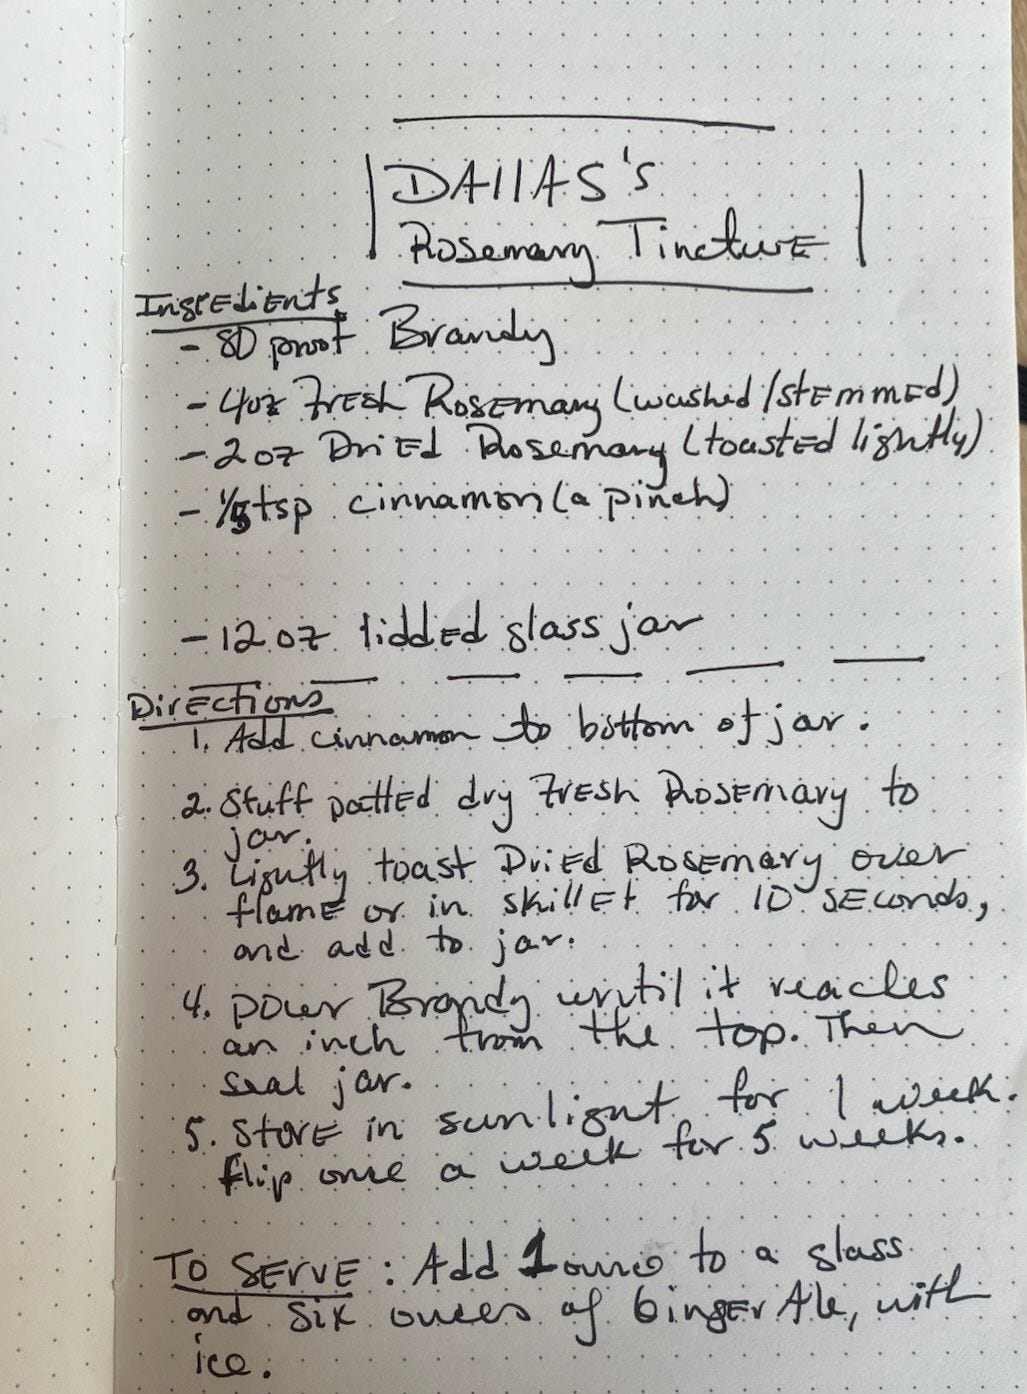 DAllAS's
Rosemary TincturE
IngrEdiEnts
- 80 proof Brandy
- 4oz FrEsh RosEmary (washed/stEmmEd)
- 2oz DriEd Rosemary (toasted lightly)
- 1/5 tsp cinnamon (a pinch)
- 12 oz liddEd glass jar
DirEctions
1. Add cinnamon to bottom of jar.
2. Stuff pattEd dry FrEsh RosEmary to
jar.
3. Lightly toast DriEd RosEmary over
flamE or in skillEt for 10 sEconds,
and add to jar.
4. pour Brandy until it reaches
an inch from the top. Then
seal jar.
5. StorE in sunlight for 1 week.
flip once a week for 5 weeks.
TO SERVE: Add 1 ounce to a glass
and six ounces of GingEr Ale, with
ice.